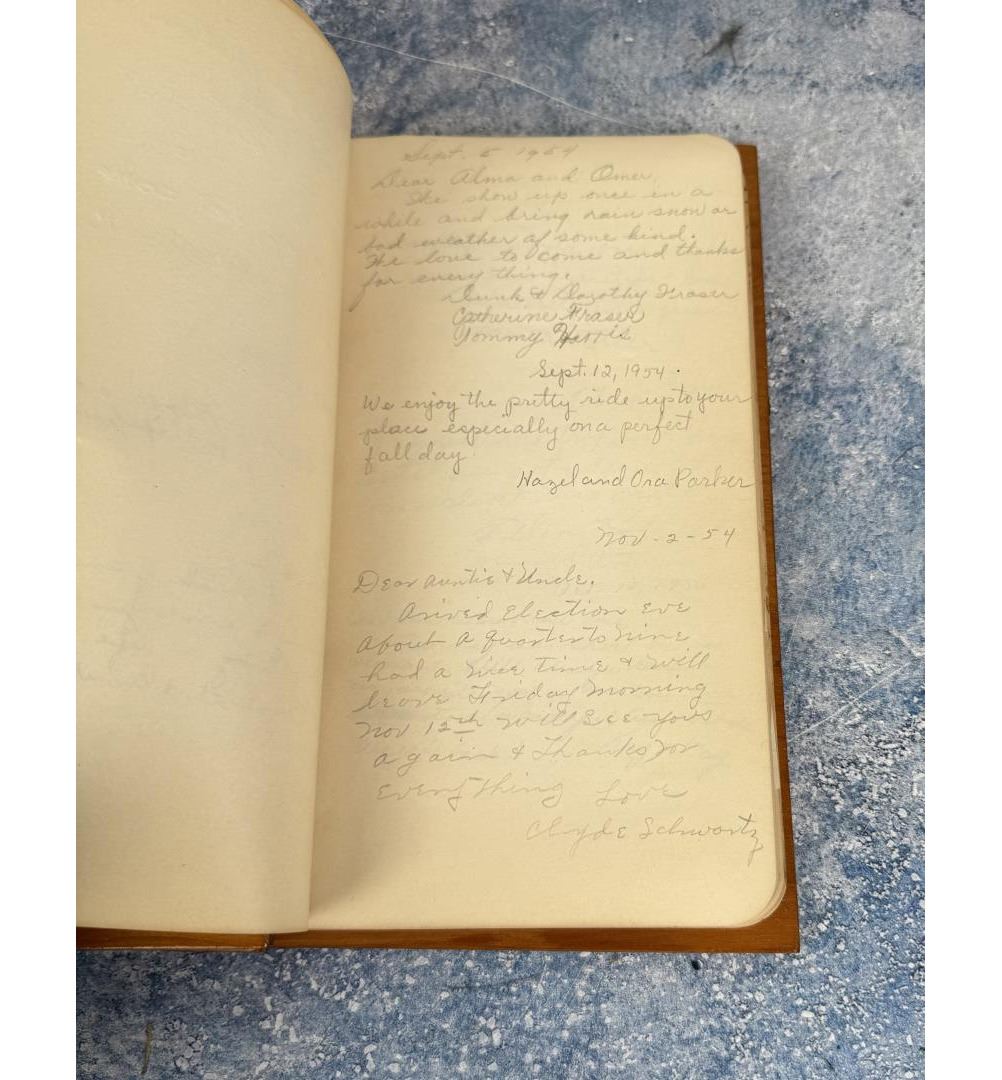 Sept. 5 1954
Dear Alma and Omer,
We show up once in a
while and bring rain snow or
bad weather of some kind.
We love to come and thanks
for every thing.
Dunk & Dorothy Fraser
Catherine Fraser
Tommy Harris
Sept. 12, 1954.
We enjoy the pretty ride up to your
place especially on a perfect
fall day.
Hazel and Ora Parker
Nov - 2 - 54
Dear Auntie & Uncle.
Arived Election Eve
About A quarter to nine
had a nice time & will
leave Friday morning
Nov 12th will see you
again & Thanks for
Everything Love
Clyde Schwartz